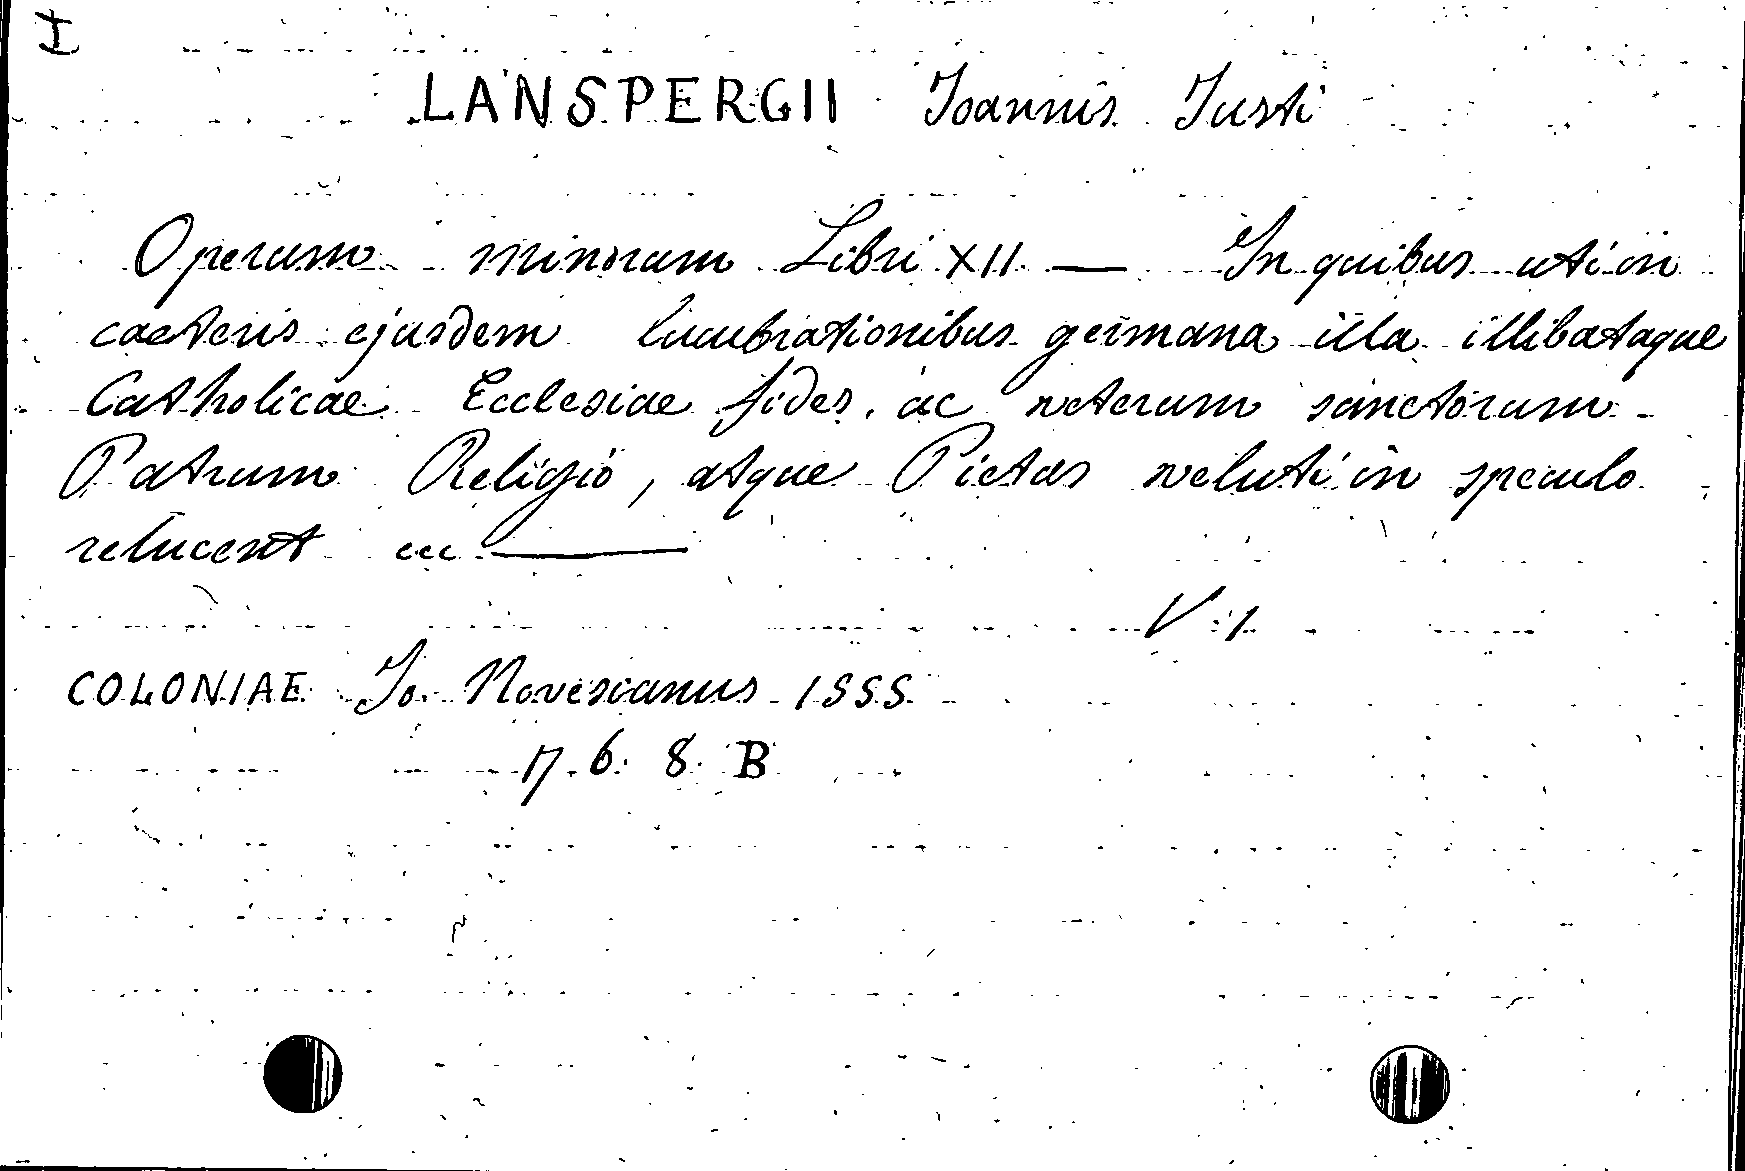 I
LANSPERGII Ioannis Iusti
Operum minorum Libri XII — In quibus uti in
caeteris ejusdem lucubrationibus germana illa illibataque
Catholicae Ecclesiae fides, ac veterum sanctorum
Patrum Religio, atque Pietas veluti in speculo
relucent ecc ———
V. 1
COLONIAE Io. Novesianus 1555
17. 6. 8. B